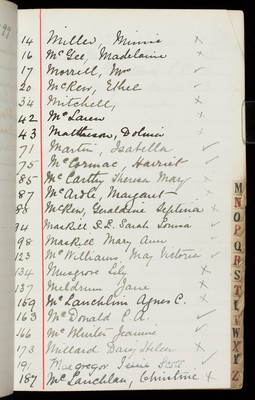 99
14 Miller, Minnie x
16 McGee, Madelaine x
17 Morrell, Mrs ✓
20 McRew, Ethel ✓
34 Mitchell, x
42 McLaren x
43 Mattheson, x
71 Martin, Isabella ✓
75 McCormac, Harriet ✓
85 McCarthy, Theresa May x
87 McArdle, Margaret x
88 Geraldine Septima x
94 MacKill Sarah ✓
98 MacKill Mary Ann ✓
123 McWilliams, May Victoria ✓
134 Musgrove Lily x
137 Meldrum Jane x
159 McLauchlin Agnes C. x
163 McDonald C.A. ✓
166 McWhirter Jeannie ✓
173 Millard Daisy Helen x
Macgregor Scott ✓
187 McLauchlan, Christine x
M
N
O
P
Q
R
S
T
W
X
Y
Z